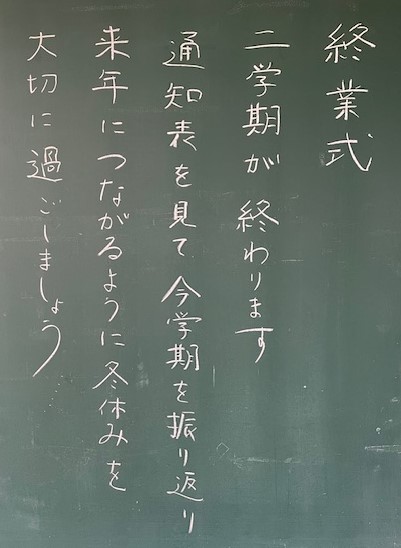 終業式
二学期が終わります
通知表を見て今学期を振り返り
来年につながるように冬休みを
大切に過ごしましょう